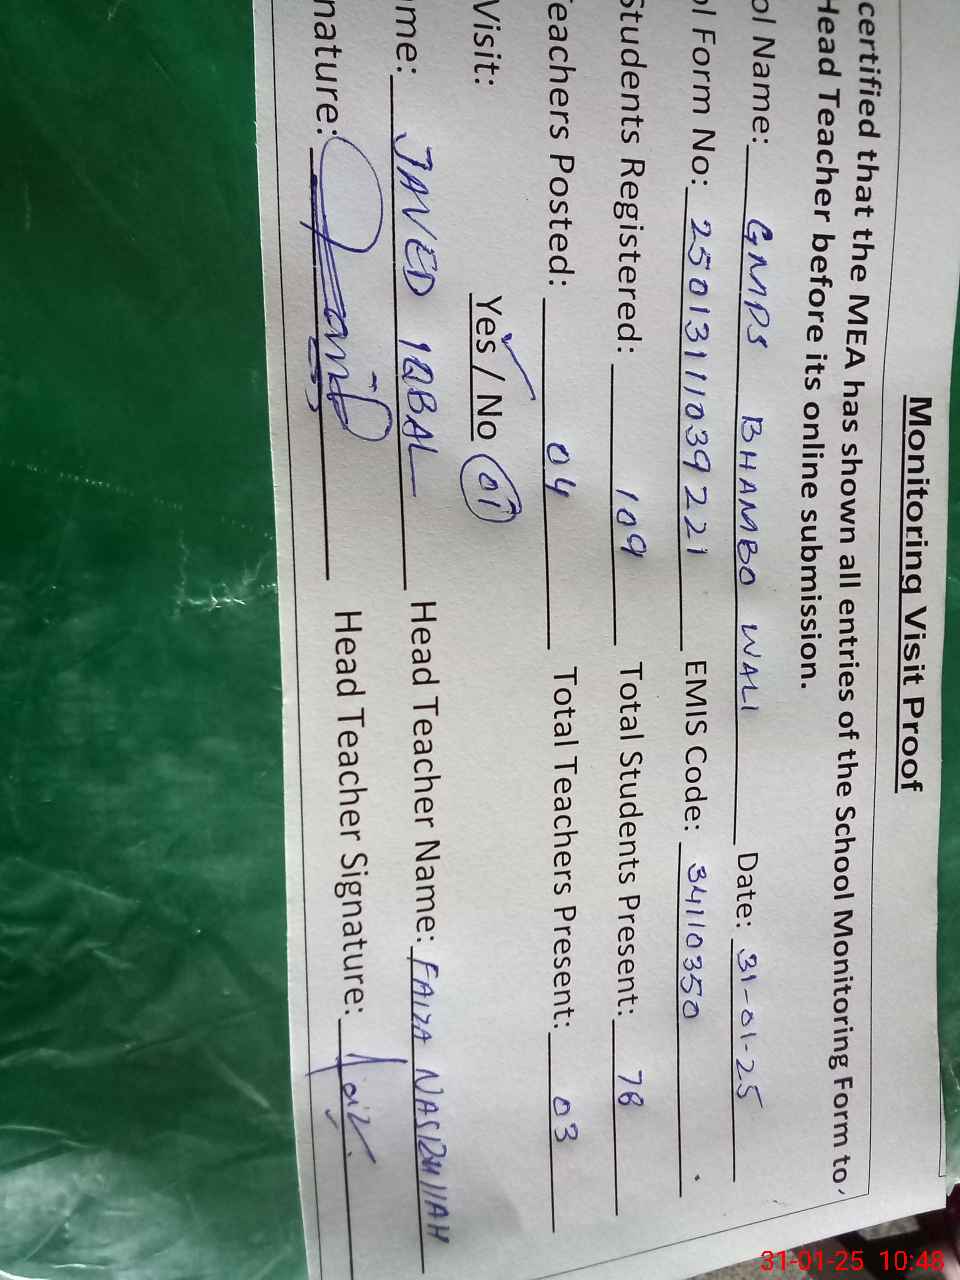 Monitoring Visit Proof
certified that the MEA has shown all entries of the School Monitoring Form to
Head Teacher before its online submission.
ol Name: GMPS BHAMBO WALI Date: 31-01-25
ol Form No: 25013111039221 EMIS Code: 34110350
Students Registered: 109 Total Students Present: 78
eachers Posted: 04 Total Teachers Present: 03
Visit: Yes / No 01
me: JAVED IQBAL Head Teacher Name: FAIZA NASRULLAH
nature: Head Teacher Signature:
31-01-25 10:48